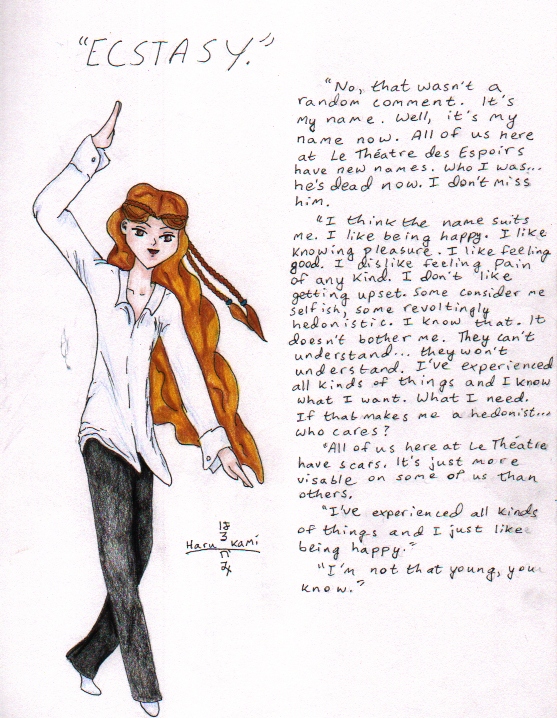 "ECSTASY."
"No, that wasn't a
random comment. It's
my name. Well, it's my
name now. All of us here
at Le Théatre des Espoirs
have new names. Who I was...
he's dead now. I don't miss
him.
"I think the name suits
me. I like being happy. I like
knowing pleasure. I like feeling
good. I dislike feeling pain
of any kind. I don't like
getting upset. Some consider me
selfish, some revoltingly
hedonistic. I know that. It
doesn't bother me. They can't
understand... they won't
understand. I've experienced
all kinds of things and I know
what I want. What I need.
If that makes me a hedonist...
who cares?
"All of us here at Le Théatre
have scars. It's just more
visable on some of us than
others.
"I've experienced all kinds
of things and I just like
being happy."
"I'm not that young, you
know."
は
る
Haru Kami
の
み